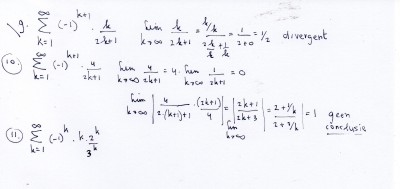 9. ∞ Σ k=1 (-1)^{k+1} · k/(2k+1) lim k→∞ k/(2k+1) = (k/k)/(2k/k + 1/k) = 1/(2+0) = 1/2 divergent
10. ∞ Σ k=1 (-1)^{k+1} · 4/(2k+1) lim k→∞ 4/(2k+1) = 4 · lim k→∞ 1/(2k+1) = 0
lim k→∞ | 4/(2·(k+1)+1) · (2k+1)/4 | = lim k→∞ | (2k+1)/(2k+3) | = | (2+1/k)/(2+3/k) | = 1 geen conclusie
11. ∞ Σ k=1 (-1)^k · k·2^k/3^k